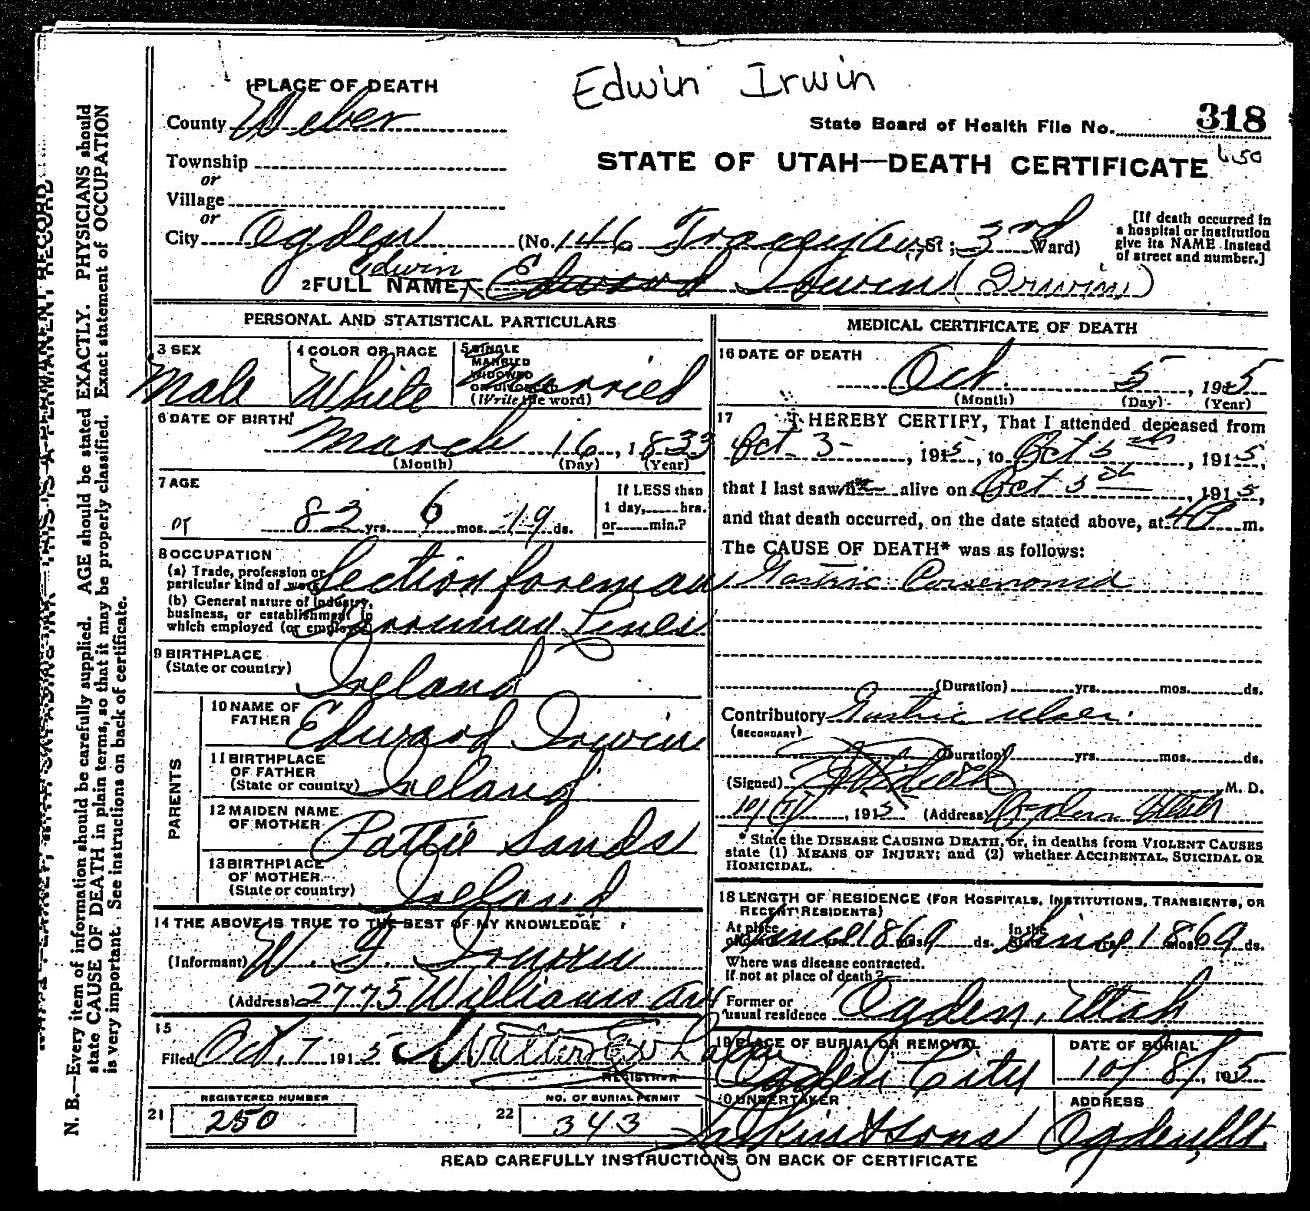 Edwin Irwin
1 PLACE OF DEATH
County Weber
State Board of Health File No. 318
Township
or
STATE OF UTAH—DEATH CERTIFICATE
450
Village
or
City Ogden (No. 146 Tracey Av. St; 3rd Ward)
[If death occurred in
a hospital or institution
give its NAME instead
of street and number.]
Edwin
2 FULL NAME Edward Irwin (Irwin)
PERSONAL AND STATISTICAL PARTICULARS
3 SEX
Male
4 COLOR OR RACE
White
5 SINGLE
MARRIED
WIDOWED
OR DIVORCED
(Write the word)
Married
6 DATE OF BIRTH
March 16, 1833
(Month) (Day) (Year)
7 AGE
82 yrs. 6 mos. 19 ds.
If LESS than
1 day, hrs.
or min.?
8 OCCUPATION
(a) Trade, profession or
particular kind of work
Section foreman
(b) General nature of industry,
business, or establishment in
which employed (or employer)
Harriman Lines
9 BIRTHPLACE
(State or country)
Ireland
PARENTS
10 NAME OF
FATHER
Edward Irwin
11 BIRTHPLACE
OF FATHER
(State or country)
Ireland
12 MAIDEN NAME
OF MOTHER
Pattie Sands
13 BIRTHPLACE
OF MOTHER
(State or country)
Ireland
14 THE ABOVE IS TRUE TO THE BEST OF MY KNOWLEDGE
(Informant) W. F. Irwin
(Address) 2775 William Av
15
Filed Oct, 7 1915
REGISTRAR
21
REGISTERED NUMBER
250
22
NO. OF BURIAL PERMIT
343
MEDICAL CERTIFICATE OF DEATH
16 DATE OF DEATH
Oct. 5, 1915
(Month) (Day) (Year)
17 I HEREBY CERTIFY, That I attended deceased from
Oct. 3, 1915, to Oct 5th, 1915,
that I last saw him alive on Oct 5th, 1915,
and that death occurred, on the date stated above, at m.
The CAUSE OF DEATH* was as follows:
Gastric Carsenomia
(Duration) yrs. mos. ds.
Contributory Gastric ulcer.
(SECONDARY)
(Duration) yrs. mos. ds.
(Signed) M. D.
, 1915 (Address) Ogden Utah
* State the DISEASE CAUSING DEATH, or, in deaths from VIOLENT CAUSES
state (1) MEANS OF INJURY; and (2) whether ACCIDENTAL, SUICIDAL OR
HOMICIDAL.
18 LENGTH OF RESIDENCE (FOR HOSPITALS, INSTITUTIONS, TRANSIENTS, OR
RECENT RESIDENTS)
At place
of death Since 1869 mos. ds.
In the
State Since 1869 ds.
Where was disease contracted.
If not at place of death?
Former or
usual residence Ogden, Utah
19 PLACE OF BURIAL OR REMOVAL
Ogden City
DATE OF BURIAL
10/8/, 1915
20 UNDERTAKER
Larkin & Sons
ADDRESS
Ogden, Ut
READ CAREFULLY INSTRUCTIONS ON BACK OF CERTIFICATE
WRITE PLAINLY, WITH UNFADING INK—THIS IS A PERMANENT RECORD
N. B.—Every item of information should be carefully supplied. AGE should be stated EXACTLY. PHYSICIANS should
state CAUSE OF DEATH in plain terms, so that it may be properly classified. Exact statement of OCCUPATION
is very important. See instructions on back of certificate.